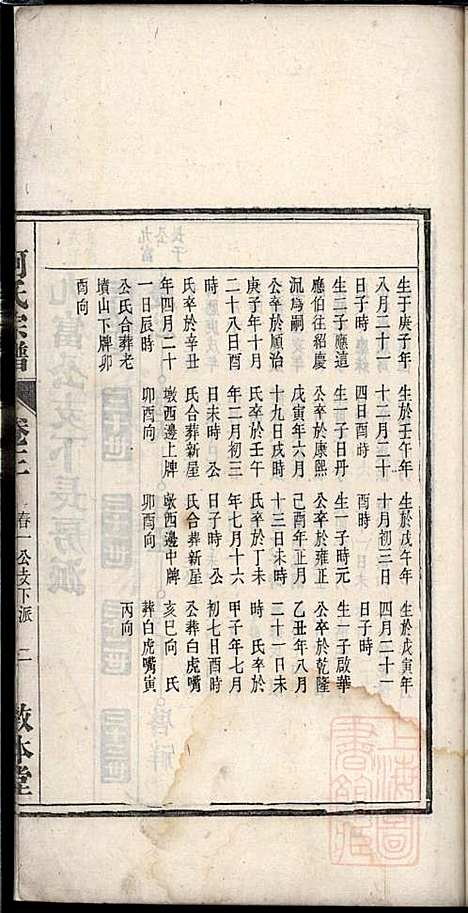 生于庚子年
八月二十一
日子時
生二子應這
應伯往紹慶
況爲嗣
公卒於順治
庚子年十月
二十八日酉
時
氏卒於辛丑
年四月二十
一日辰時
公氏合葬老
墳山下牌卯
酉向
生於壬午年
十二月二十
四日酉時
生一子日丹
公卒於康熙
戊寅年六月
十九日戌時
氏卒於壬午
年二月初三
日未時 公
氏合葬新屋
墩西邊上牌
卯酉向
生於戊午年
十月初三日
酉時
生一子時元
公卒於雍正
己酉年正月
十三日未時
氏卒於丁未
年七月十六
日子時 公
氏合葬新屋
墩西邊中牌
卯酉向
生於戊寅年
四月二十一
日子時
生一子啟華
公卒於乾隆
乙丑年八月
二十一日未
時 氏卒於
甲子年七月
初七日酉時
公葬白虎嘴
亥巳向 氏
葬白虎嘴寅
丙向
何氏宗譜 春一公支下派 二 敦本堂
上海圖書館藏